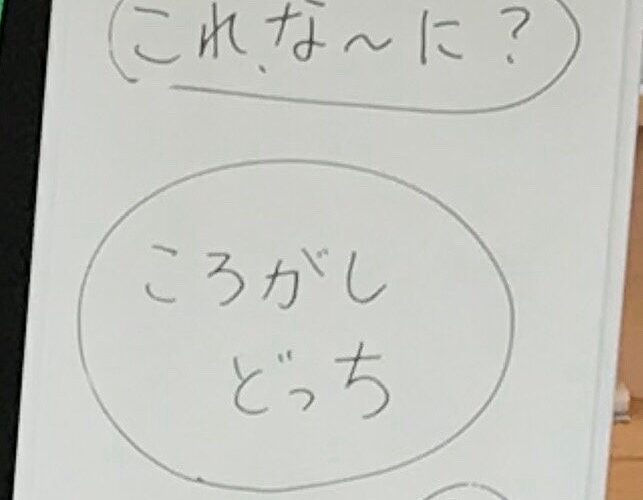 これな〜に?
ころがし
どっち